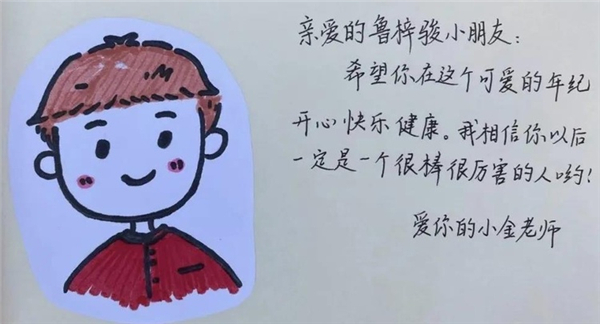 亲爱的鲁梓骏小朋友:
希望你在这个可爱的年纪
开心快乐健康。我相信你以后
一定是一个很棒很厉害的人哟!
爱你的小金老师